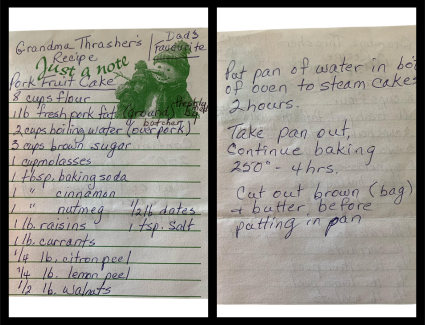 Grandma Thrasher's
Recipe
Dad's
Favourite
Just a note
Pork Fruit Cake
8 cups flour
1 lb fresh pork fat (ground by
butcher)
2 cups boiling water (over pork)
3 cups brown sugar
1 cup molasses
1 tbsp. baking soda
1 " cinnamon
1 " nutmeg 1/2 lb dates
1 lb. raisins 1 tsp. salt
1 lb. currants
1/4 lb. citron peel
1/4 lb. lemon peel
1/2 lb. walnuts
Put pan of water in bot
of oven to steam cake
2 hours.
Take pan out,
Continue baking
250° - 4 hrs.
Cut out brown (bag)
+ butter, before
putting in pan